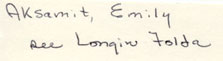 Aksamit, Emily
see Longin Folda